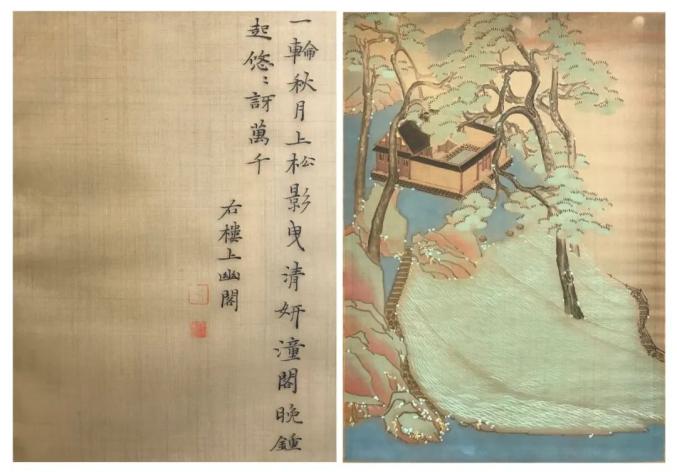 一輪秋月上松影曳清妍潼閣晚鍾
起悠〻訝萬千
右樓上幽閣